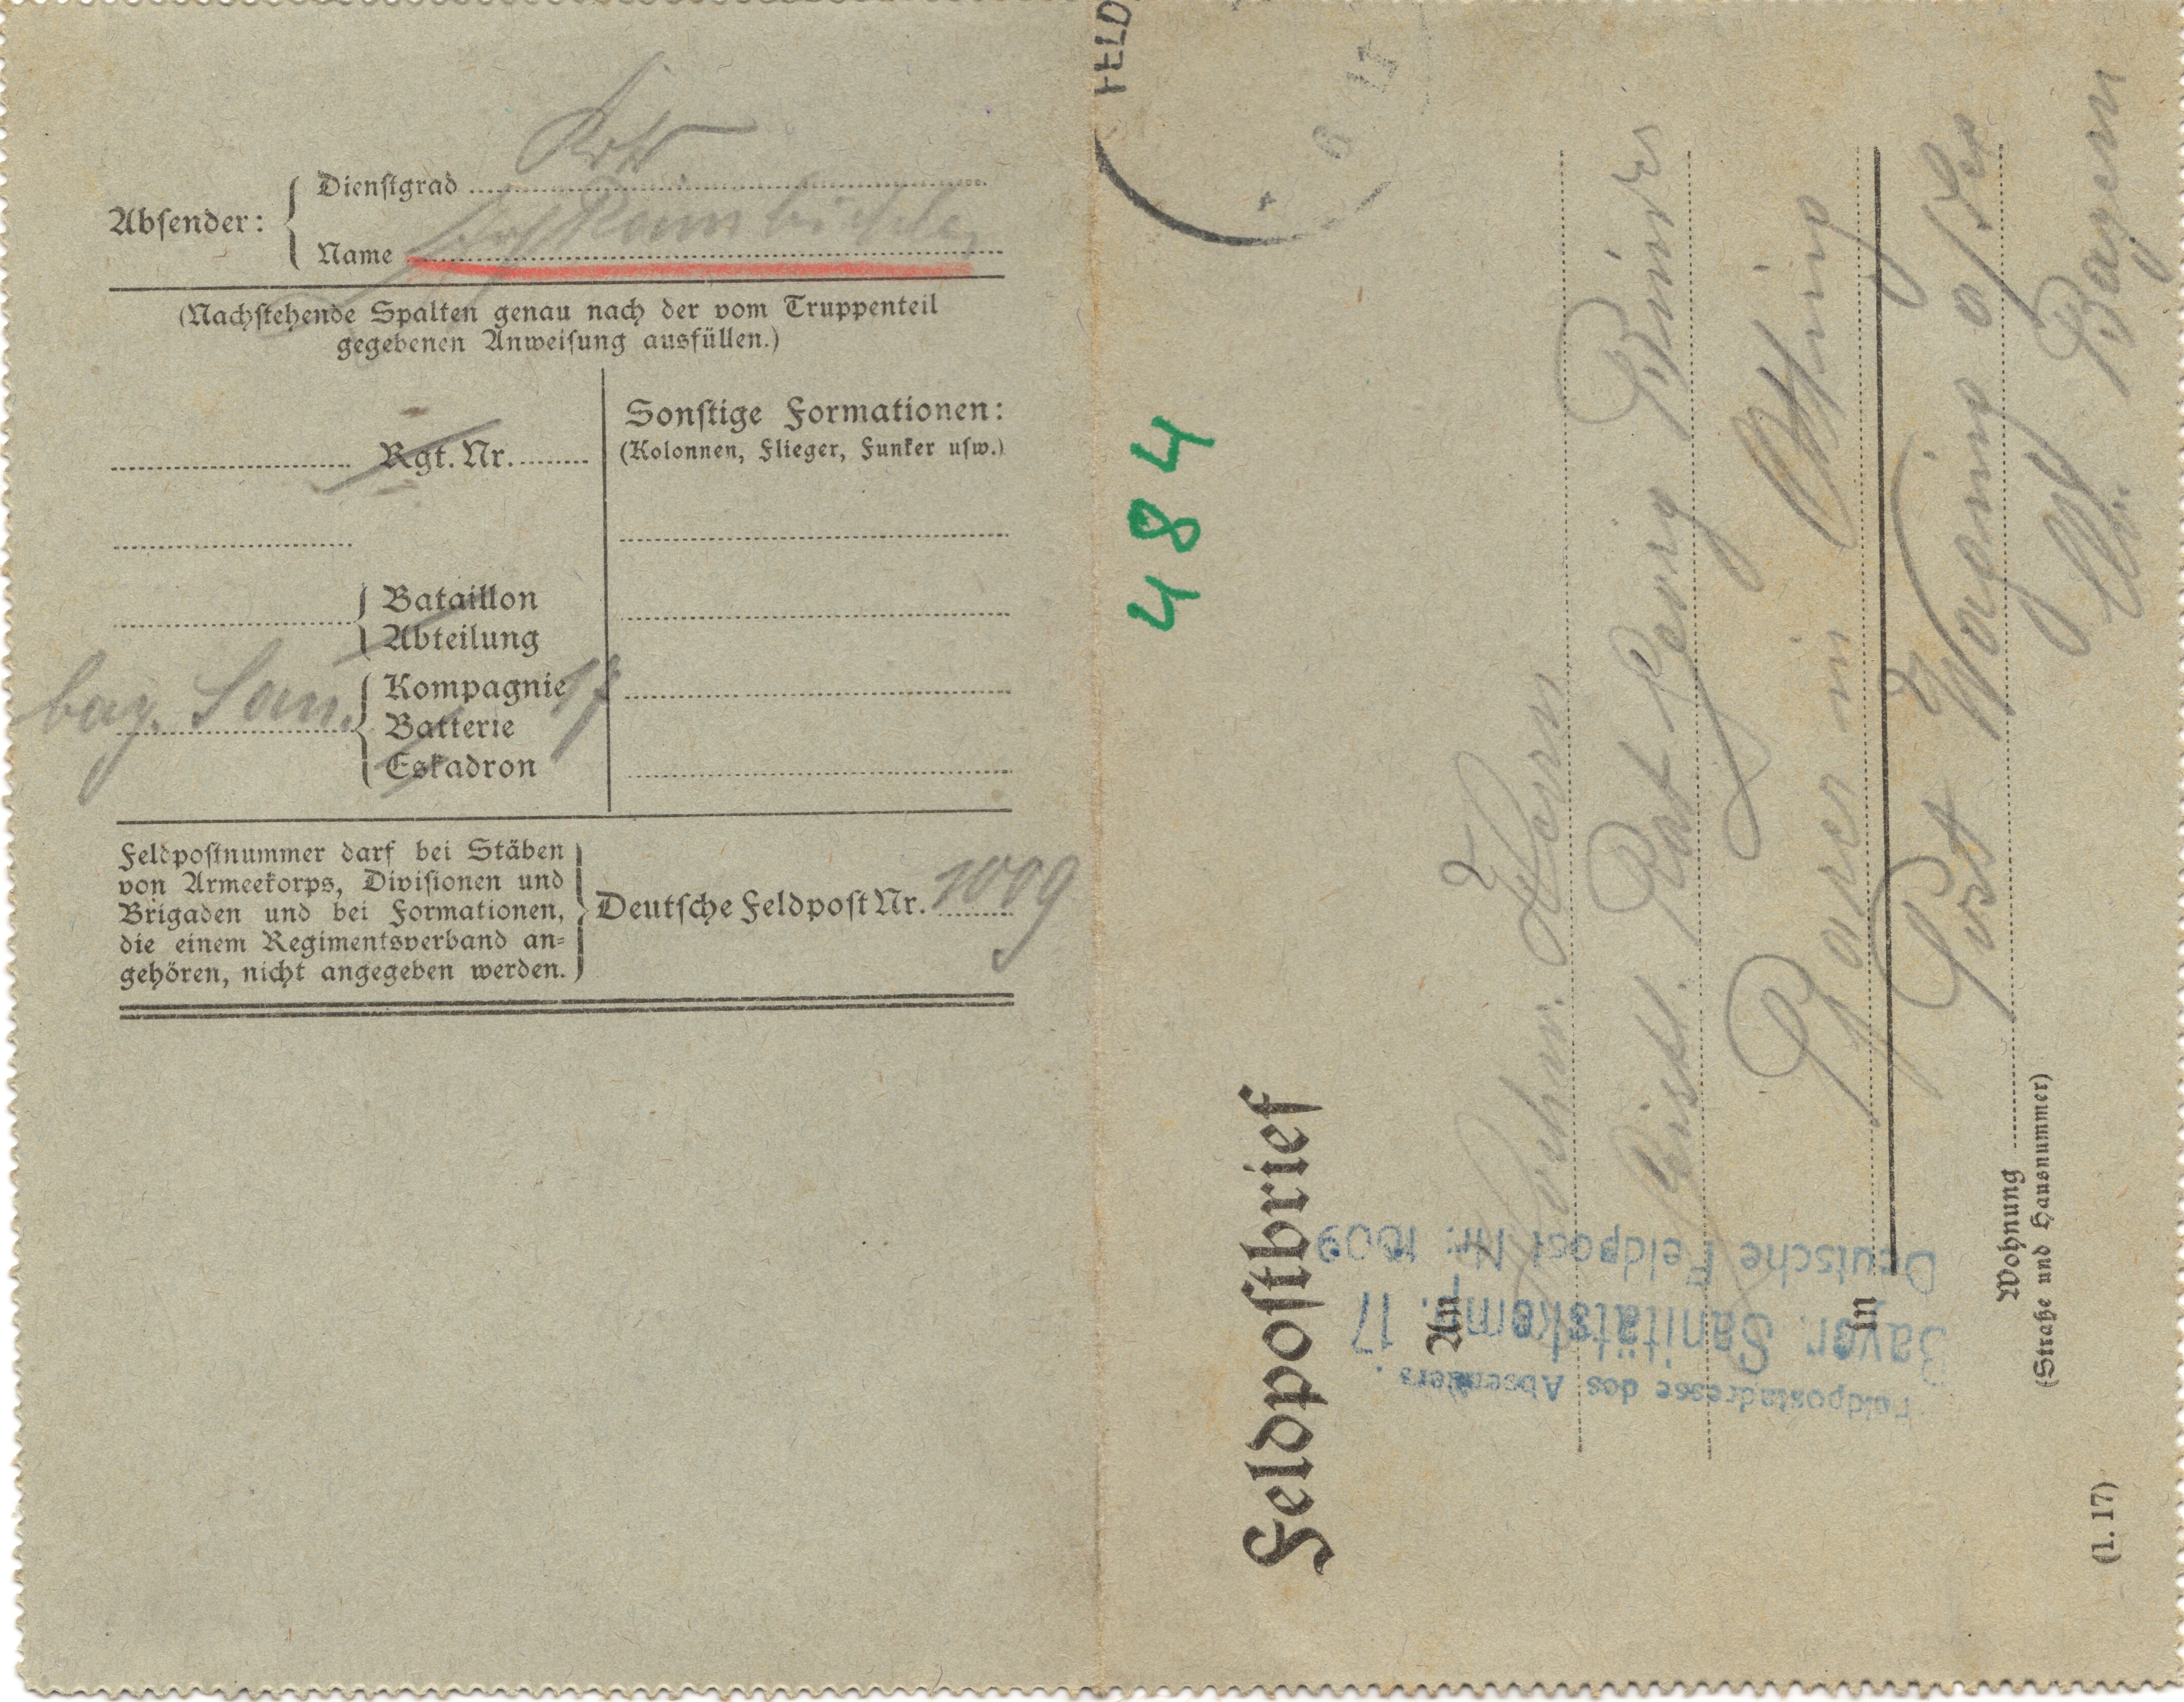 Absender:
Dienstgrad
Name
(Nachstehende Spalten genau nach der vom Truppenteil
gegebenen Anweisung ausfüllen.)
Rgt. Nr.
Bataillon
Abteilung
bay. San. Kompagnie 17
Batterie
Eskadron
Sonstige Formationen:
(Kolonnen, Flieger, Funker usw.)
Feldpostnummer darf bei Stäben
von Armeekorps, Divisionen und
Brigaden und bei Formationen,
die einem Regimentsverband an-
gehören, nicht angegeben werden.
Deutsche Feldpost Nr. 1009
FELD
484
Feldpostbrief
An Hochw. Herrn
Geistl. Rat Georg
Pfarrer in Otting
in
Post Waging a/See
Bayern
Wohnung
(Straße und Hausnummer)
(1. 17)
Feldpostadresse des Absenders.
Bayer. Sanitätskomp. 17
Deutsche Feldpost Nr. 1009